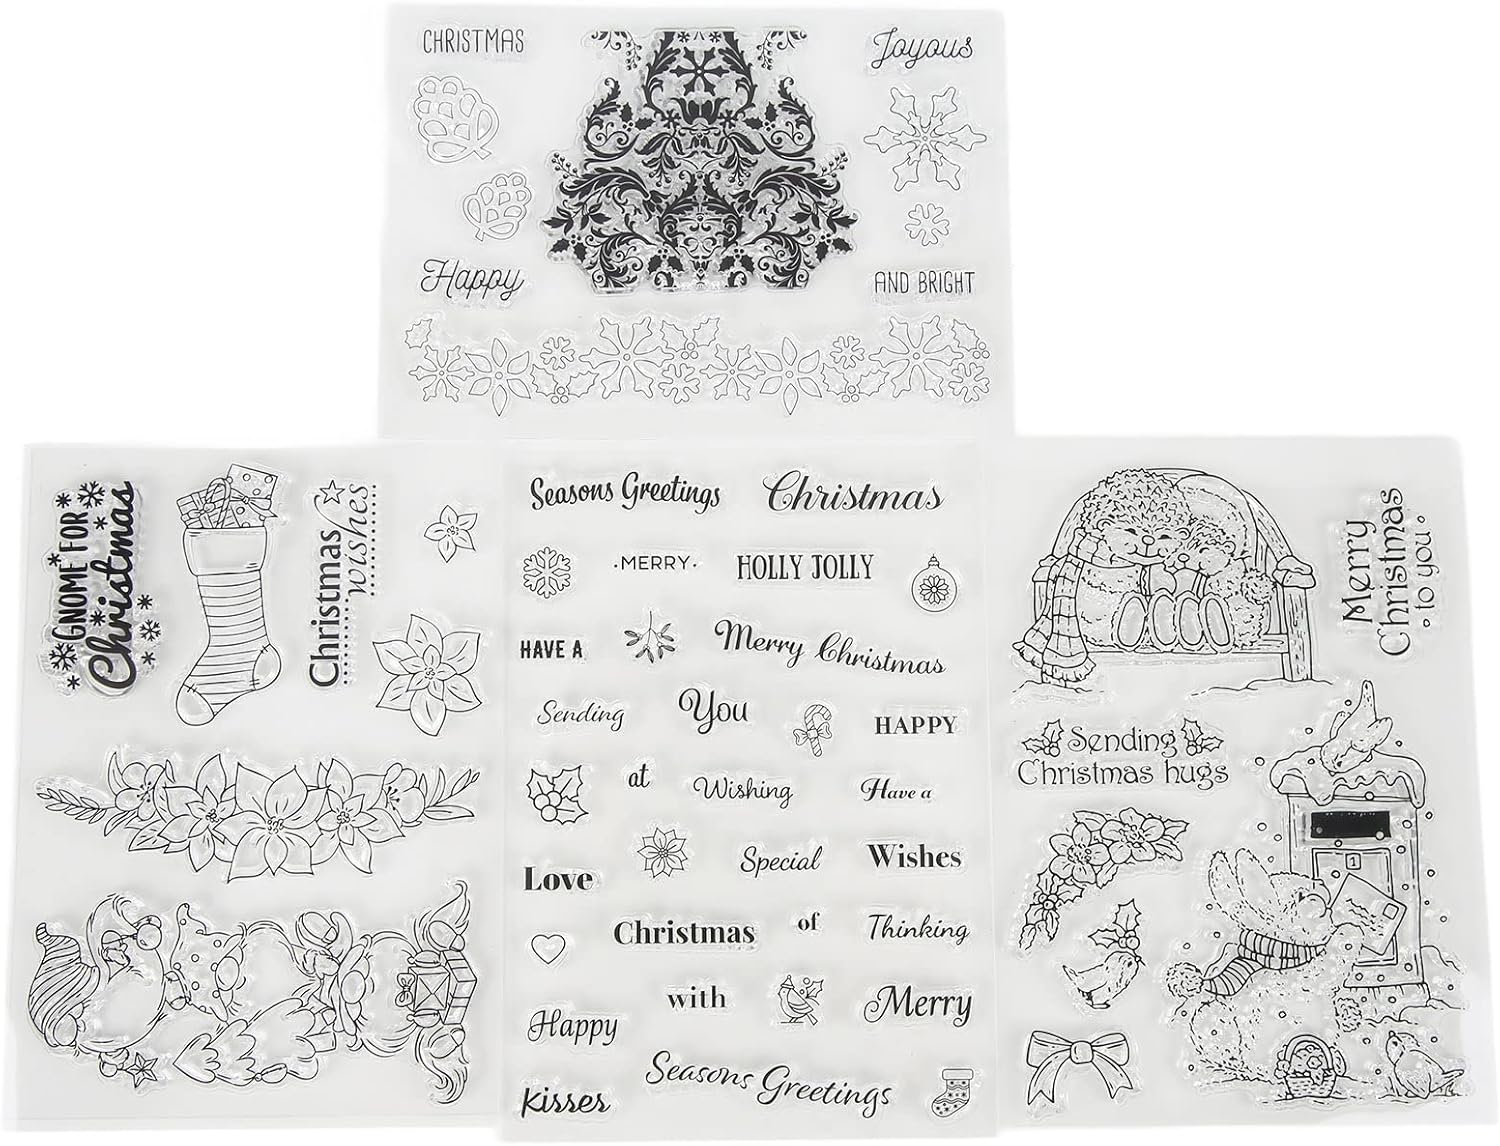 CHRISTMAS
Joyous
Happy
AND BRIGHT
GNOME FOR
Christmas
Christmas
wishes
Seasons Greetings
Christmas
·MERRY·
HOLLY JOLLY
HAVE A
Merry Christmas
Sending
You
HAPPY
at
Wishing
Have a
Love
Special
Wishes
Christmas
of
Thinking
with
Merry
Happy
Seasons Greetings
Kisses
Merry
Christmas
·to you·
Sending
Christmas hugs
1